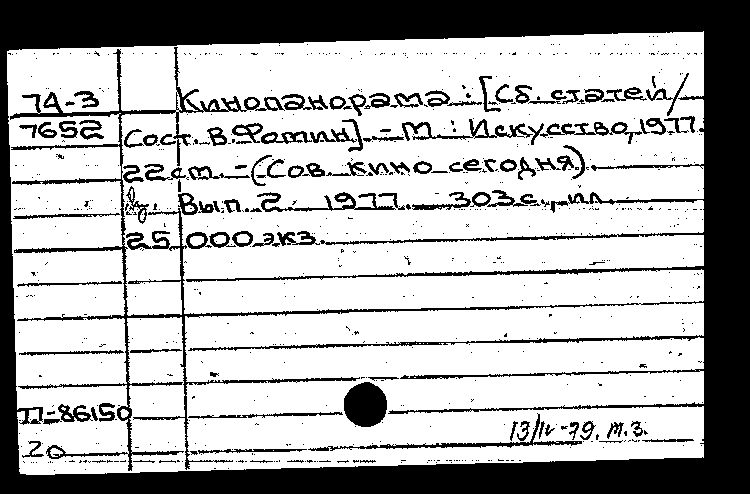 74-3 Кинопанорама : [Сб. статей /
7652 Сост. В. Фомин]. – М : Искусство, 1977.
22 cm. – (Сов. кино сегодня).
Вып. 2. 1977. 303 с., ил.
25 000 экз.
П-86150
20
13/IV-79. м.з.